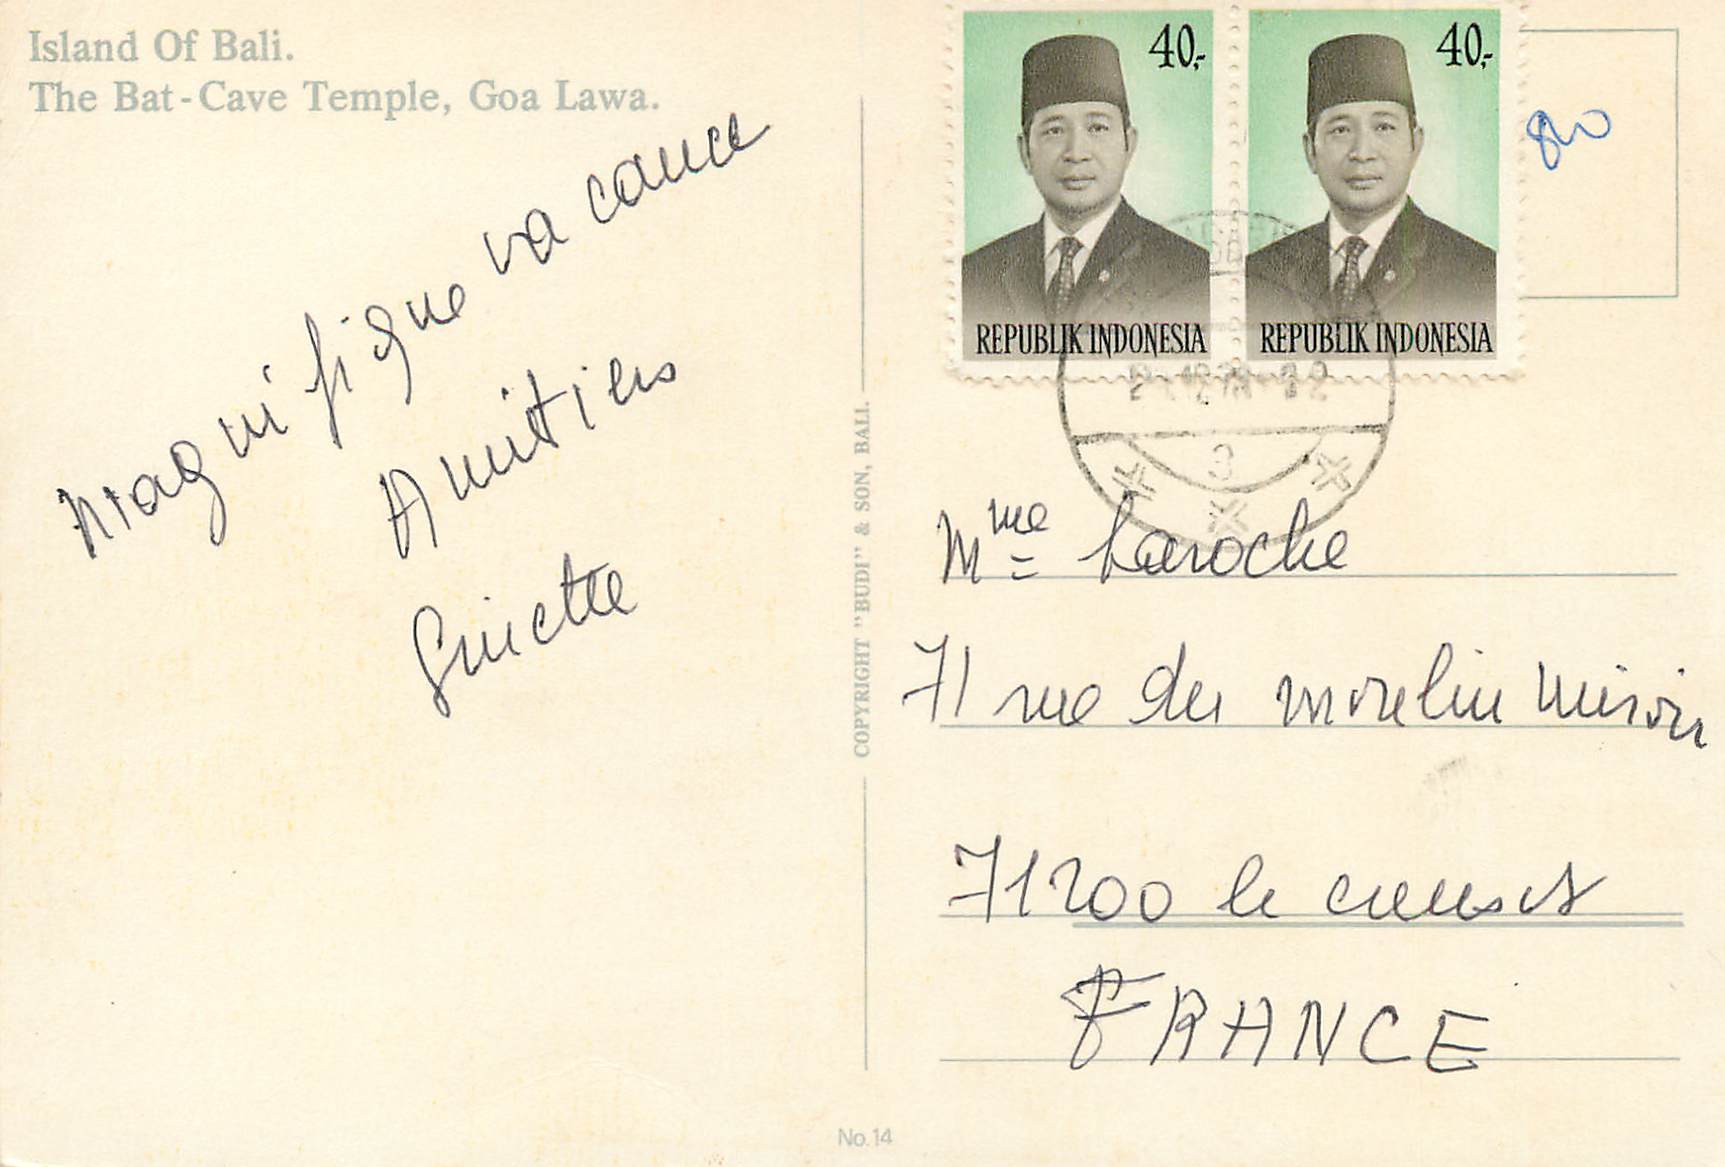 Island Of Bali.
The Bat-Cave Temple, Goa Lawa.
Magnifique vacance
Amitiés
Ginette
COPYRIGHT "BUDI" & SON, BALI.
No.14
40,-
REPUBLIK INDONESIA
40,-
REPUBLIK INDONESIA
80
3
Mme Laroche
71 rue du
71200 le creusot
FRANCE